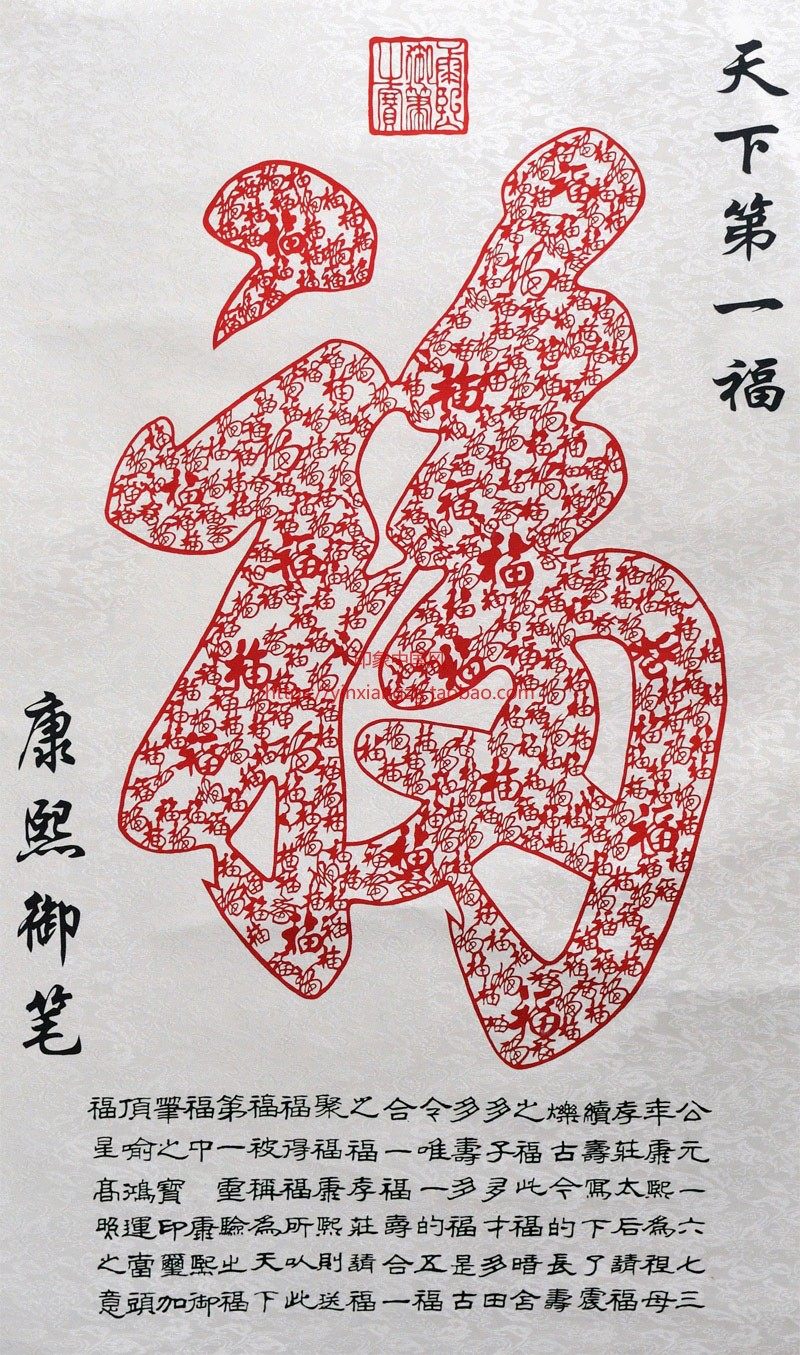 康熙
御筆
之寶
天下第一福
康熙御笔
印象中国网
公元一六七三
年康熙為祖母
孝莊太后請福
續壽寫下了震
爍古今的長壽
之福此福暗含
多子多才多田
多壽多福是古
令唯一的五福
合一福壽合一
之福孝莊請福
聚福康熙則送
福得福所以此
福被稱為天下
第一重驗之福
福中 康熙御
筆之寶印璽加
頂喻鴻運當頭
福星高照之意